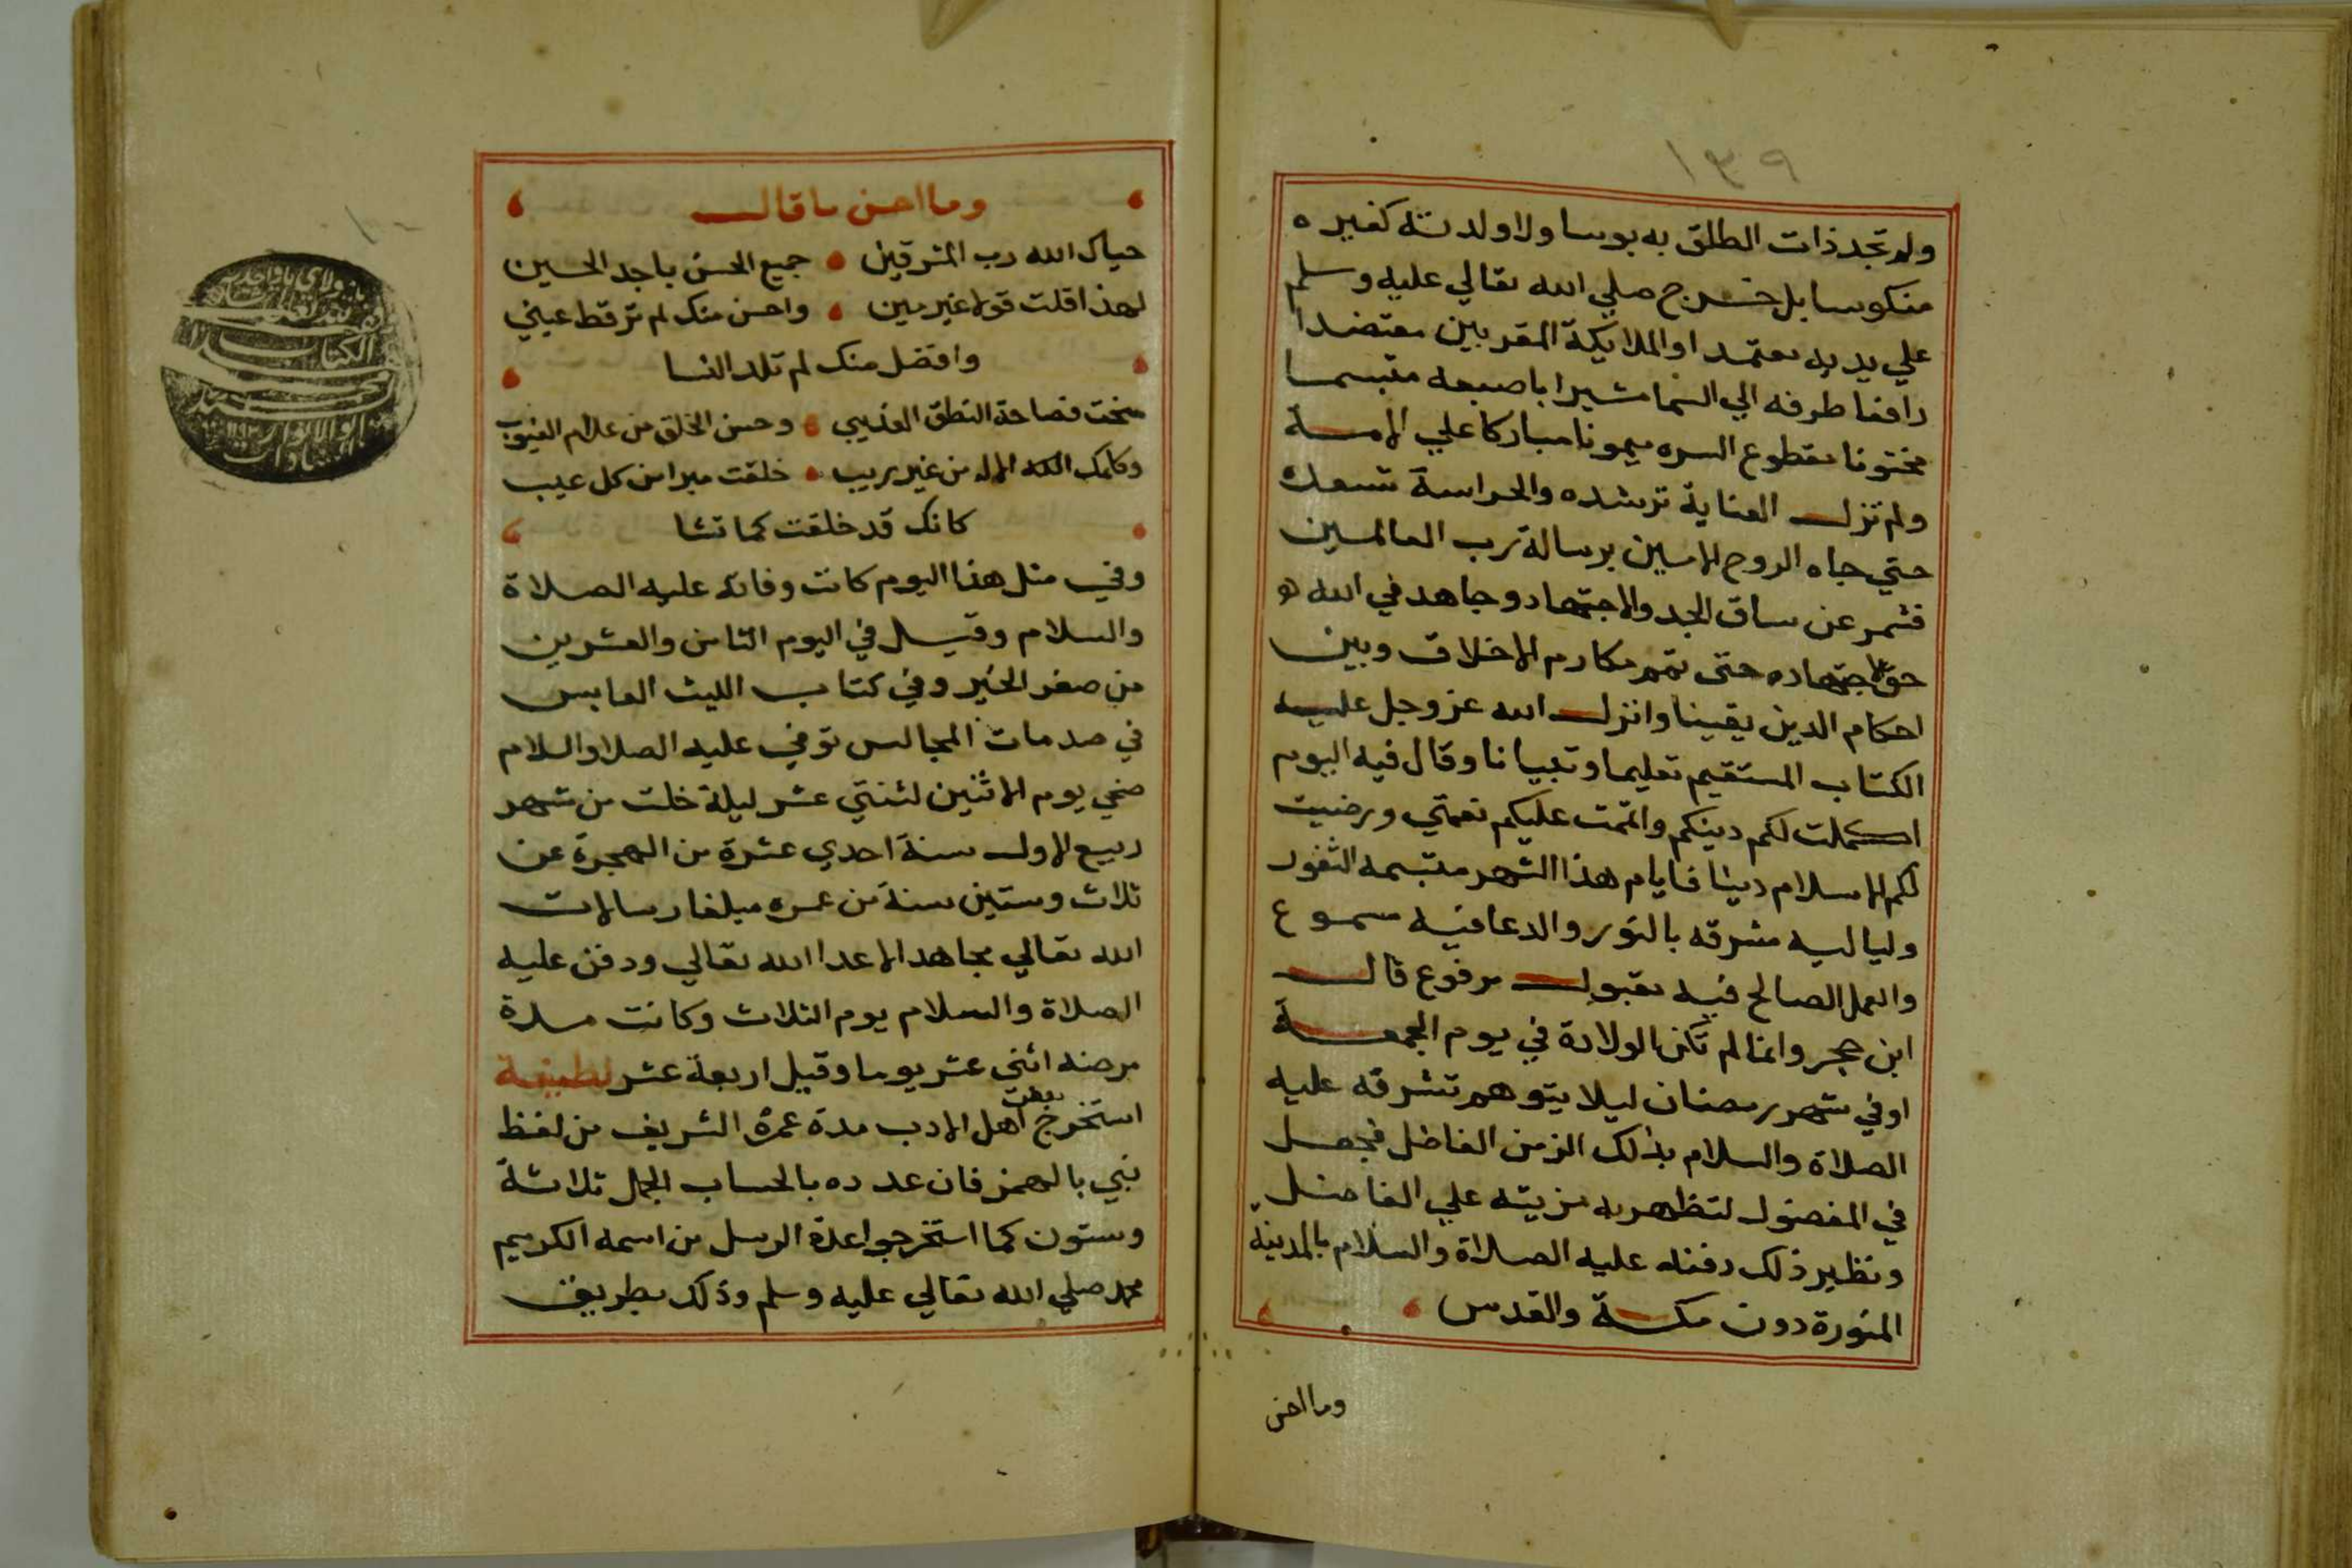 ١٣٩
ولم تجد ذات الطلق به بوسا ولا ولدته كغيره
منكوسا بل خرج صلي الله تعالي عليه وسلم
علي يديه معتمدا والملايكة المقربين معتضدا
رافعا طرفه الي السما مشيرا باصبعه متبسما
مختونا مقطوع السره ميمونا مباركا علي الامة
ولم تزل العناية ترشده والحراسة تسعده
حتي جاه الروح الامين برسالة رب العالمين
فشمر عن ساق الجد والاجتهاد وجاهد في الله
حق اجتهاده حتى تمم مكارم الاخلاق وبين
احكام الدين يقينا وانزل الله عز وجل عليه
الكتاب المستقيم تعليما وتبيانا وقال فيه اليوم
اكملت لكم دينكم واتممت عليكم نعمتي ورضيت
لكم الاسلام دينا فايام هذا الشهر متبسمه الثغور
ولياليه مشرقه بالنور والدعا فيه مسموع
والعمل الصالح فيه مقبول مرفوع قال
ابن حجر وانما لم تكن الولادة في يوم الجمعة
او في شهر رمضان ليلا يتوهم تشرفه عليه
الصلاة والسلام بذلك الزمن الفاضل فجعل
في المفضول لتظهر به مزيته علي الفاضل
ونظير ذلك دفنه عليه الصلاة والسلام بالمدينة
المنورة دون مكة والقدس
وما احسن
وما احسن ما قال
حياك الله رب المشرقين جميع الحسن ياجد الحسين
لهذا قلت قولا غير مين واحسن منك لم ترقط عيني
وافضل منك لم تلد النسا
منحت فصاحة النطق العذيبي وحسن الخلق من علام الغيوب
وكملك الاله من غير ريب خلقت مبرا من كل عيب
كانك قد خلقت كما تشا
وفي مثل هذا اليوم كانت وفاته عليه الصلاة
والسلام وقيل في اليوم الثامن والعشرين
من صفر الخير وفي كتاب الليث العابس
في صدمات المجالس توفي عليه الصلا والسلام
ضحي يوم الاثنين لثنتي عشر ليلة خلت من شهر
ربيع الاول سنة احدي عشرة من الهجرة عن
ثلاث وستين سنة من عمره مبلغا رسالات
الله تعالي مجاهد الاعدا الله تعالي ودفن عليه
الصلاة والسلام يوم الثلاث وكانت مدة
مرضه اثني عشر يوما وقيل اربعة عشر لطيفة
استخرج بعض اهل الادب مدة عمره الشريف من لفظ
نبي بالهمز فان عدده بالحساب الجمل ثلاثة
وستون كما استخرجوا عدة الرسل من اسمه الكريم
محمد صلي الله تعالي عليه وسلم وذلك بطريق